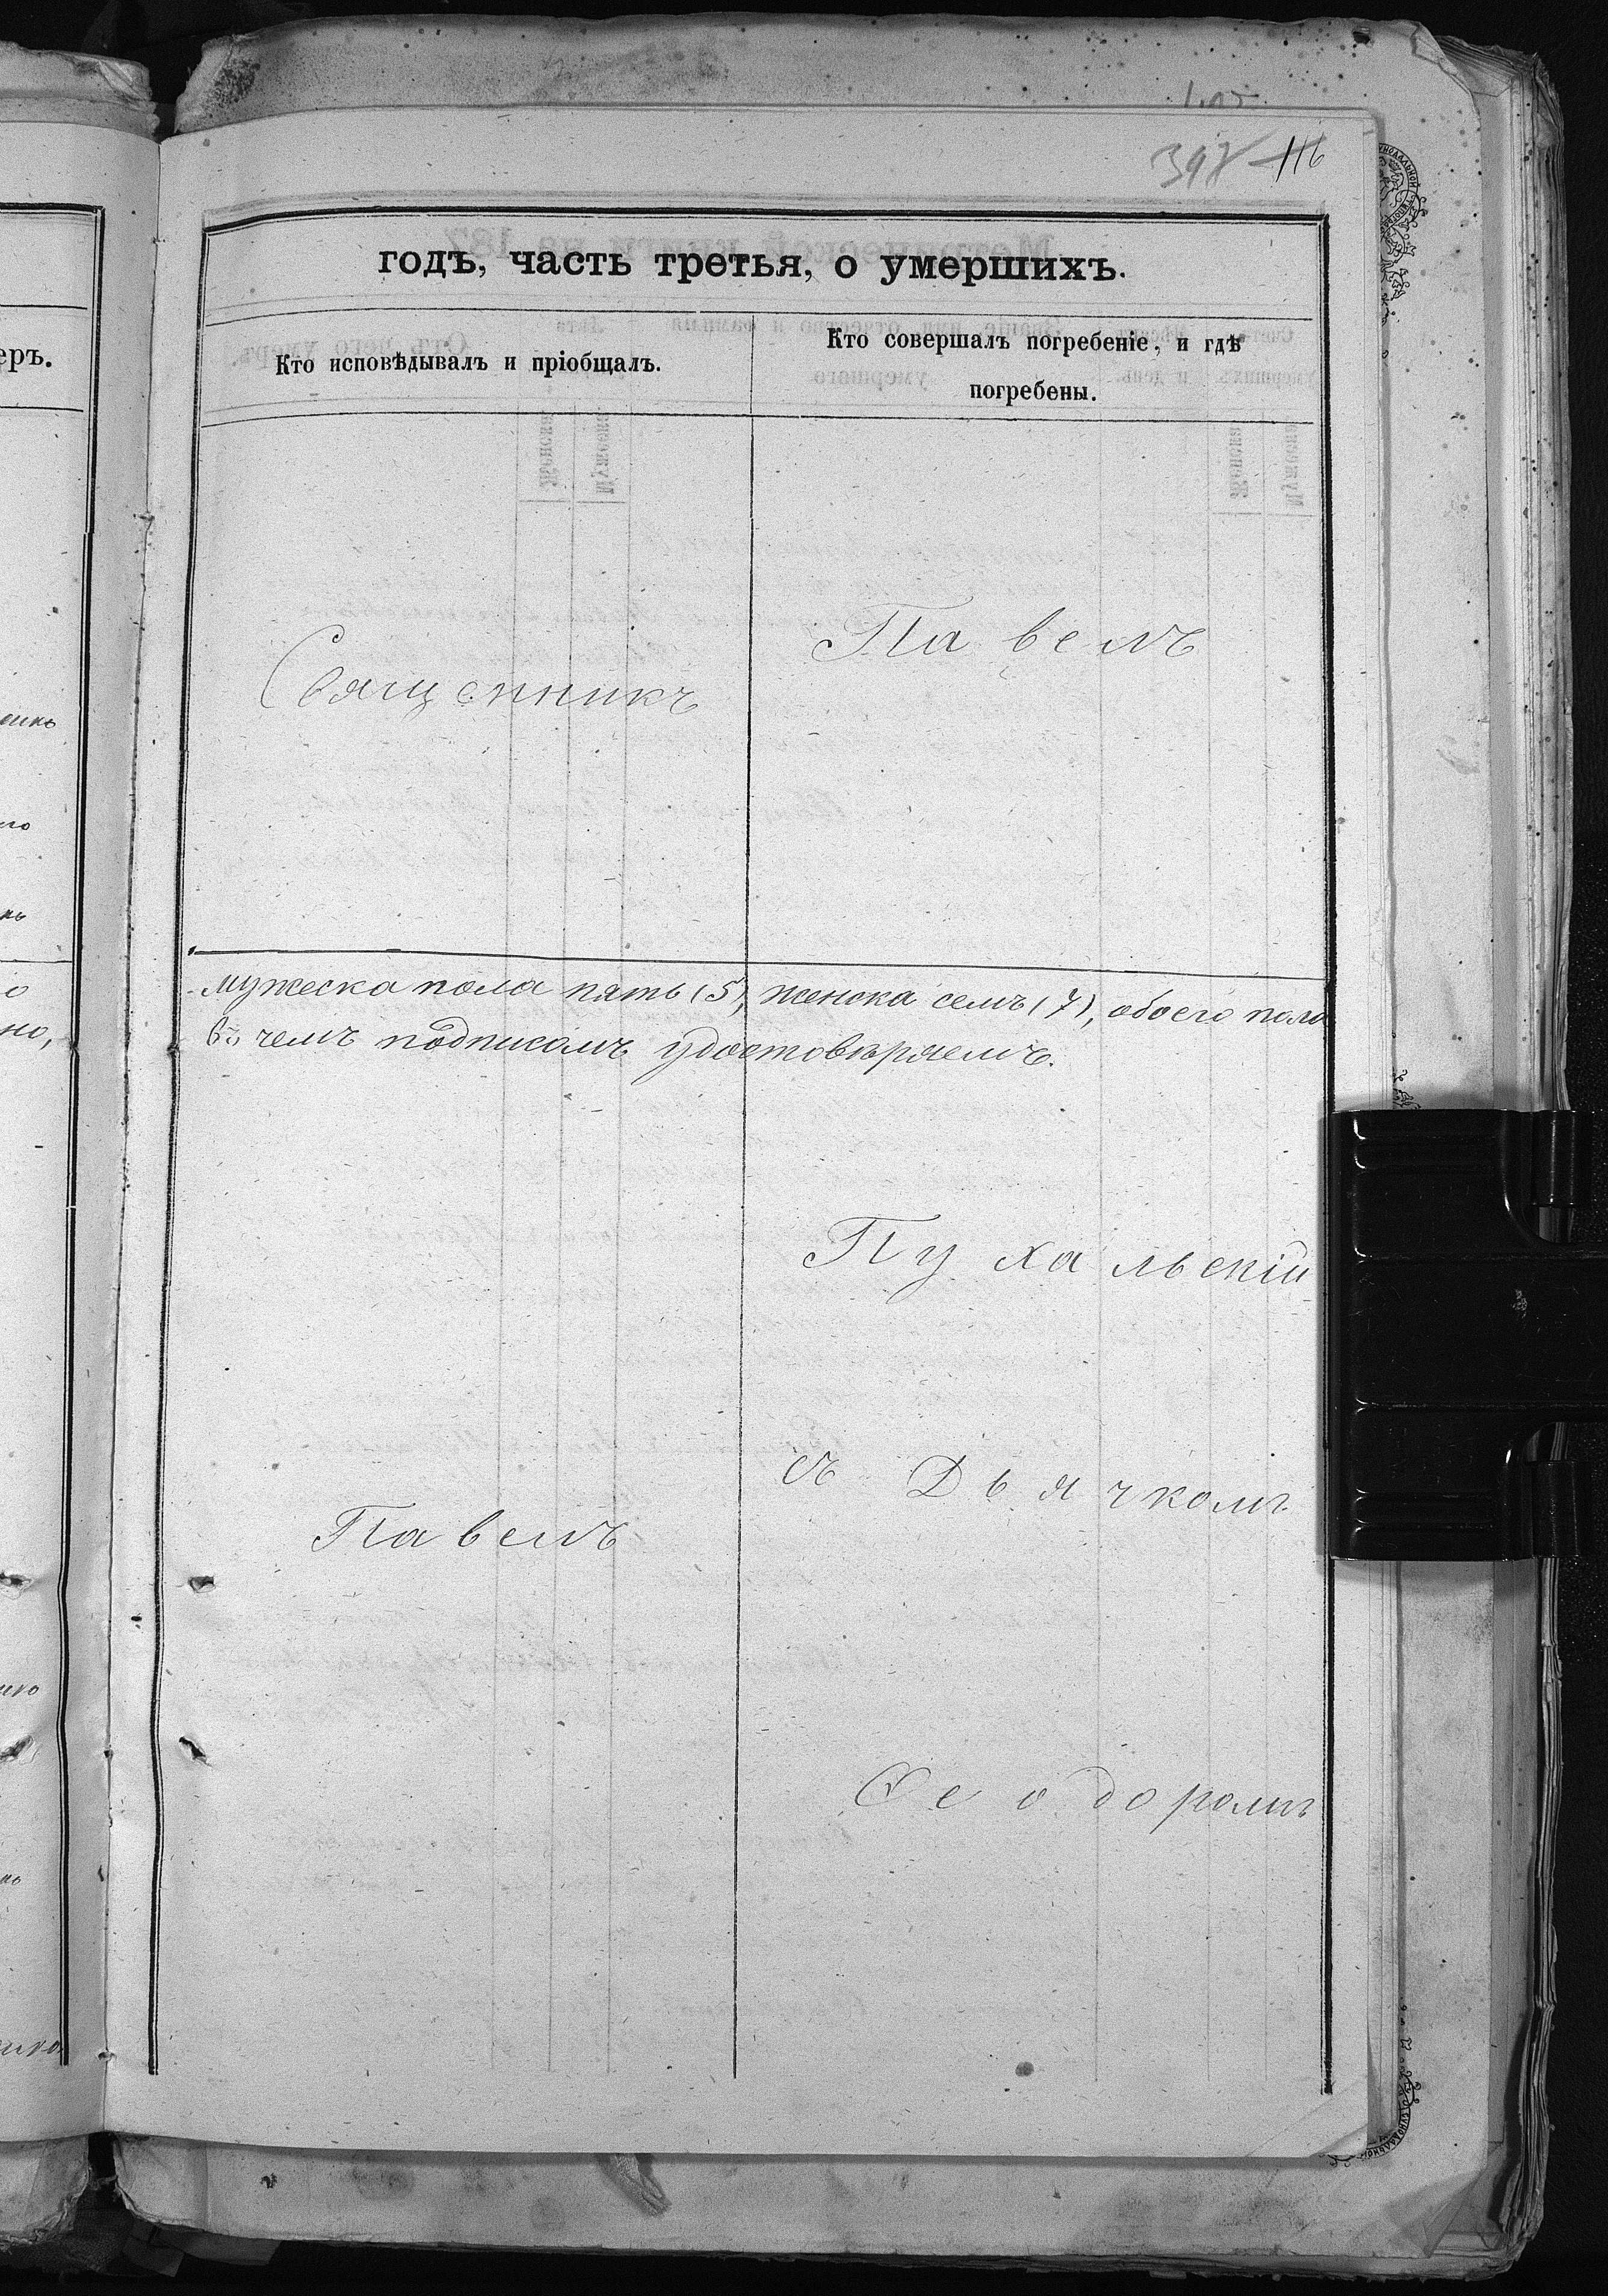 397 116
годъ, часть третья, о умершихъ.
еръ.
Кто исповѣдывалъ и пріобщалъ.
Кто совершалъ погребеніе, и гдѣ
погребены.
Павелъ
Священникъ
мужеска пола пять (5), женска семь (7), обоего пола
въ чемъ подписомъ удостовѣряемъ.
Пухальскій
съ Дьячкомъ
Павелъ
Ѳеодоромъ